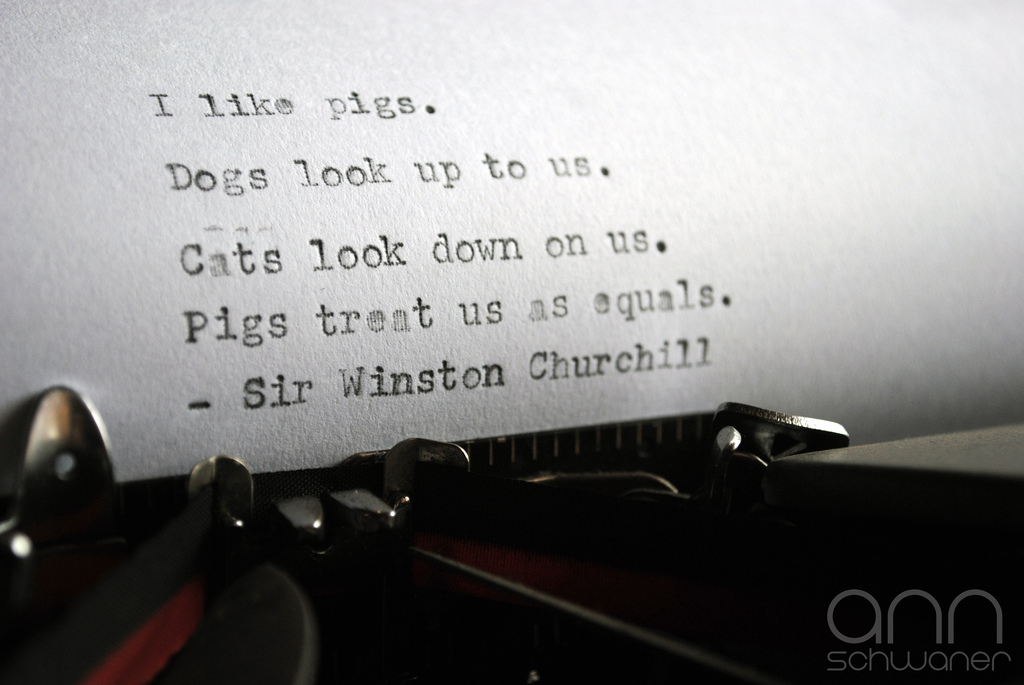 I like pigs.
Dogs look up to us.
Cats look down on us.
Pigs treat us as equals.
- Sir Winston Churchill
ann
schwaner